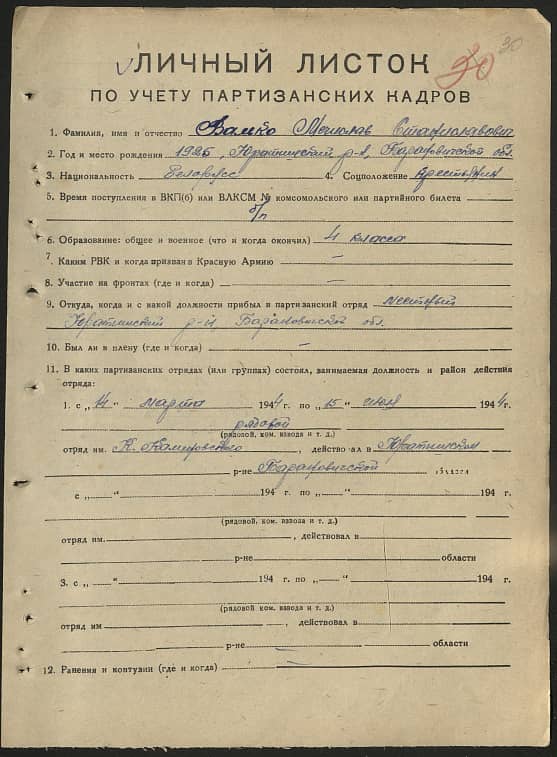 30
30
ЛИЧНЫЙ ЛИСТОК
ПО УЧЕТУ ПАРТИЗАНСКИХ КАДРОВ
1. Фамилия, имя и отчество Вамко Мечислав Станиславович
2. Год и место рождения 1925, Юратишский р-н, Барановичской обл.
3. Национальность Белорусс 4. Соцположение крестьянин
5. Время поступления в ВКП(б) или ВЛКСМ № комсомольского или партийного билета
б/п
6. Образование: общее и военное (что и когда окончил) 4 класса
7. Каким РВК и когда призван в Красную Армию —
8. Участие на фронтах (где и когда) —
9. Откуда, когда и с какой должности прибыл в партизанский отряд местный
Юратишский р-н, Барановичской обл.
10. Был ли в плену (где и когда) —
11. В каких партизанских отрядах (или группах) состоял, занимаемая должность и район действия
отряда:
1. с „14“ марта 1944 г. по „15“ июл 1944 г.
рядовой
(рядовой, ком. взвода и т. д.)
отряд им. К. , действовал в Юратишском
р-не Барановичской области
с „ “ 194 г. по „ “ 194 г.
(рядовой, ком. взвода и т. д.)
отряд им. , действовал в
р-не области
3. с „ “ 194 г. по „ “ 194 г.
(рядовой, ком. взвода и т. д.)
отряд им , действовал в
р-не области
12. Ранения и контузии (где и когда) —